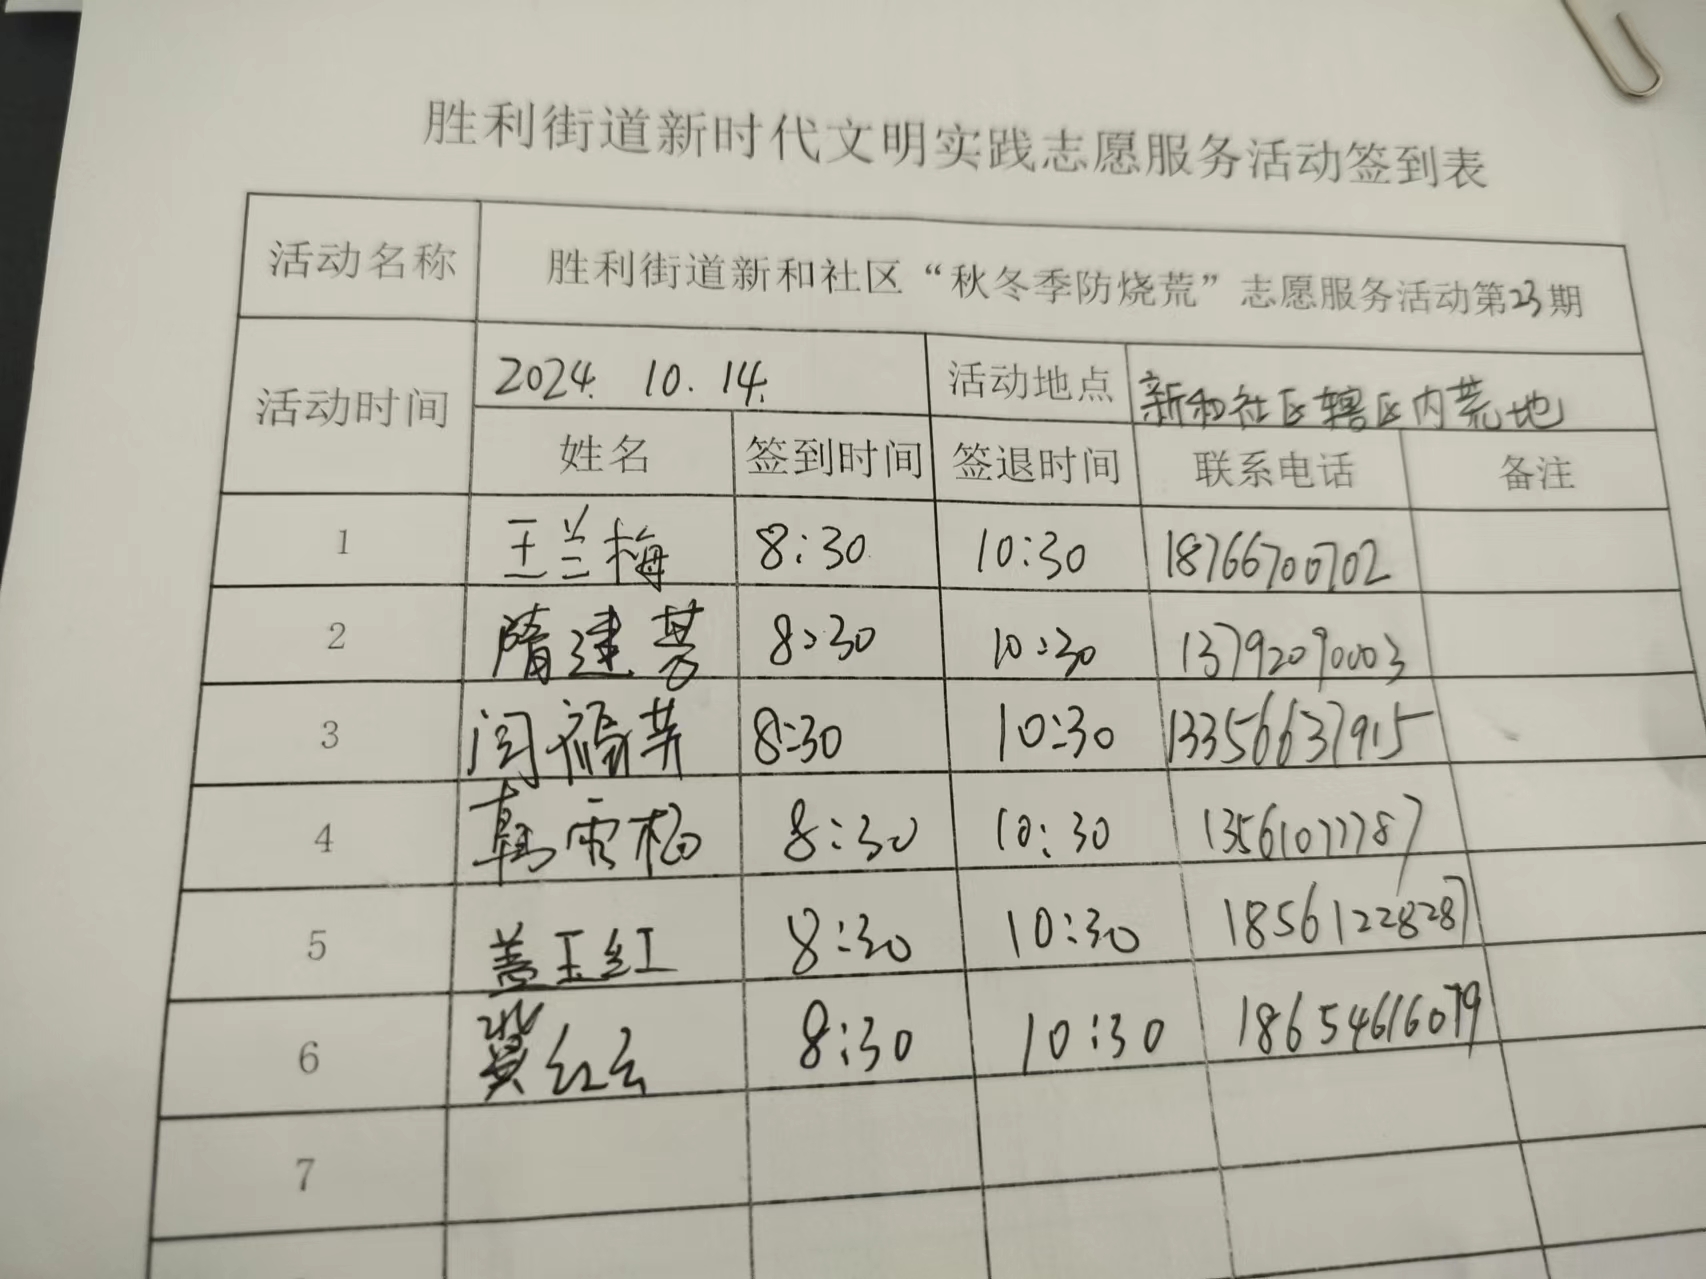 胜利街道新时代文明实践志愿服务活动签到表
活动名称 胜利街道新和社区“秋冬季防烧荒”志愿服务活动第23期
活动时间 2024. 10. 14. 活动地点 新和社区辖区内荒地
姓名 签到时间 签退时间 联系电话 备注
1 王兰梅 8:30 10:30 18766700702
2 隋建芳 8:30 10:30 13792090003
3 闫福芹 8:30 10:30 13356637915
4 韩雪梅 8:30 10:30 13561077787
5 盖玉红 8:30 10:30 18561228287
6 冀红云 8:30 10:30 18654616079
7